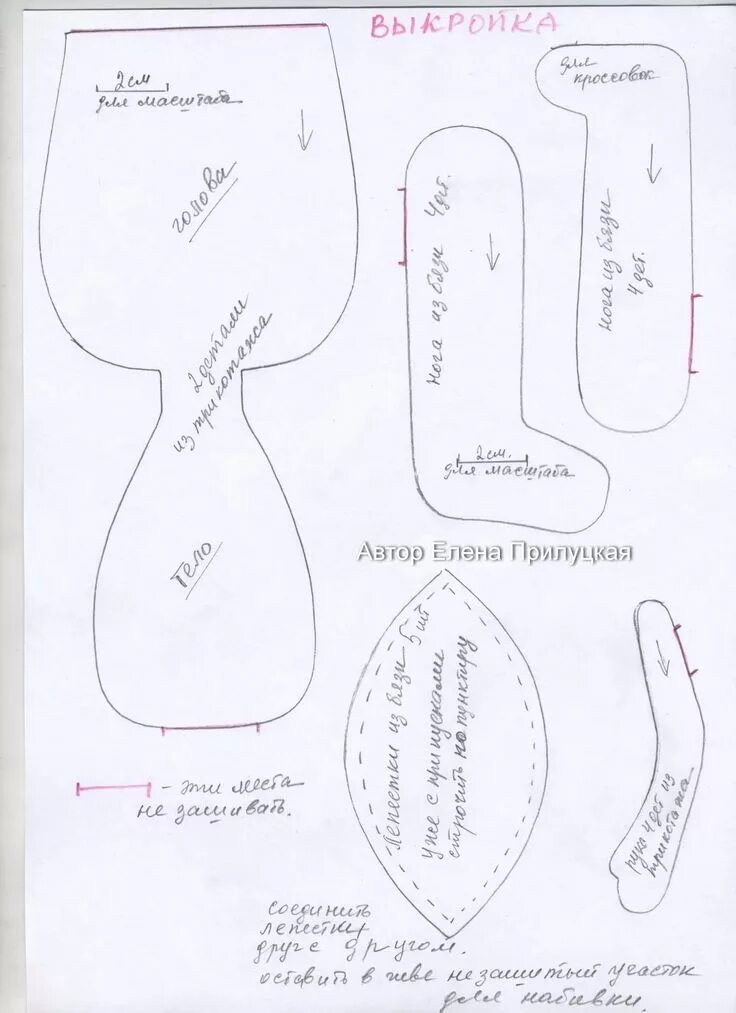 ВЫКРОЙКА
2см
для масштаба
голова
2 детали
из трикотажа
тело
нога из бязи 4 дет.
2см.
для масштаба
для
кроссовок
нога из бязи
4 дет.
Автор Елена Прилуцкая
Лепестки из бязи 5 шт
уже с припусками
строчить по пунктиру
рука 4 дет из
трикотажа
- эти места
не зашивать.
соединить
лепестки
друг с другом.
оставить в шве незашитый участок
для набивки.